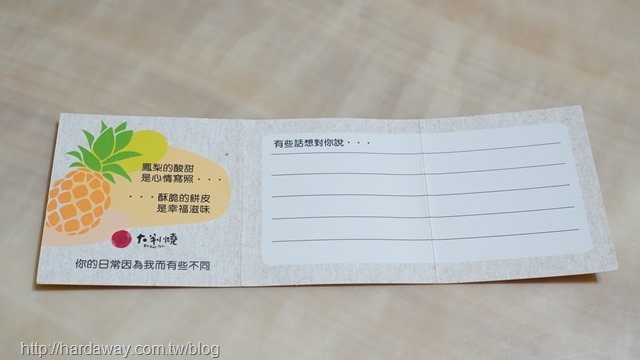 鳳梨的酸甜
是心情寫照...
...酥脆的餅皮
是幸福滋味
大判燒
你的日常因為我而有些不同
有些話想對你說...
http://hardaway.com.tw/blog